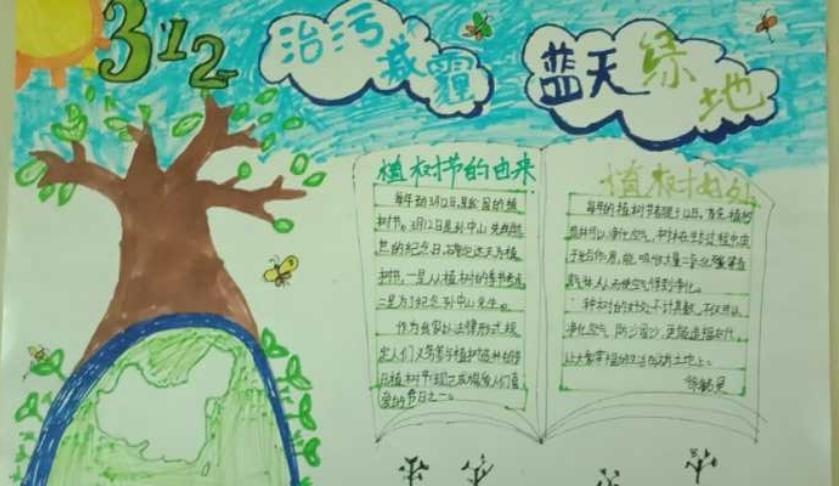 312
治污减霾
蓝天绿地
植树节的由来
每年的3月12日,是我国的植
树节。3月12日是孙中山先生逝
世的纪念日,确定这天为植
树节,一是从植树的季节考虑
二是为了纪念孙中山先生。
作为我国以法律形式规
定人们义务参与植树
日植树节现已成为人们喜
爱的节日之一。
植树
每年的植树节都是于12日,首先植树
造林可以净化空气,树木在生长过程中由
于光合作用,能吸收大量二氧化碳等有
害气体,从而使空气得到净化。
种树的好处不计其数,不仅可以
净化空气,防沙固沙,更能造福后代,
让大家幸福的生活在这片土地上。